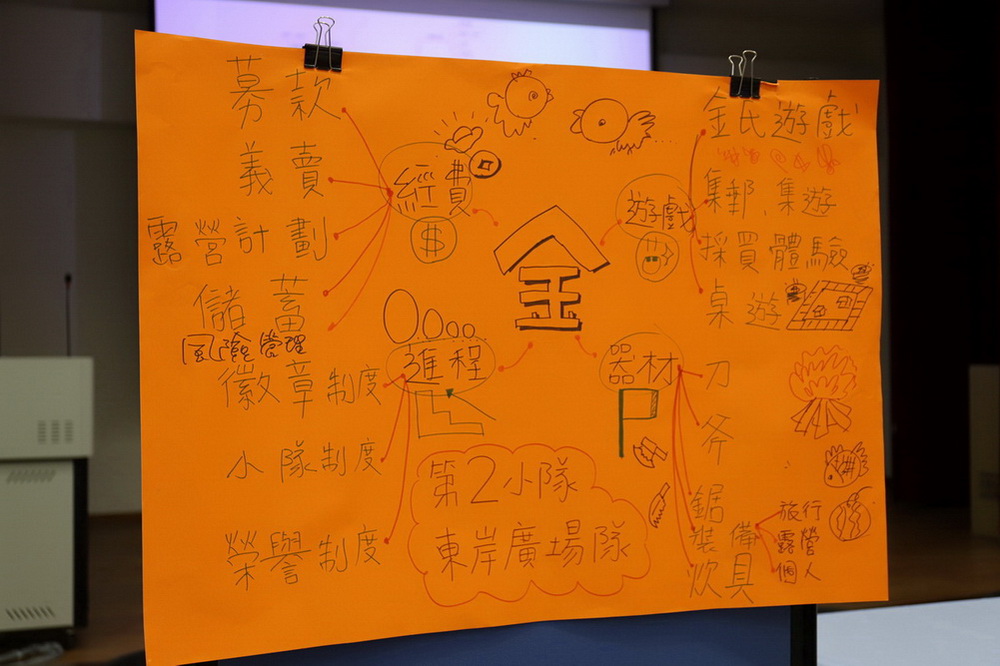 募款
義賣
露營計劃
儲蓄
風險管理
經費
$
金
遊戲
金氏遊戲
集郵、集遊
採買體驗
桌遊
進程
徽章制度
小隊制度
榮譽制度
器材
刀
斧
鋸
裝備
旅行
露營
個人
炊具
第2小隊
東岸廣場隊